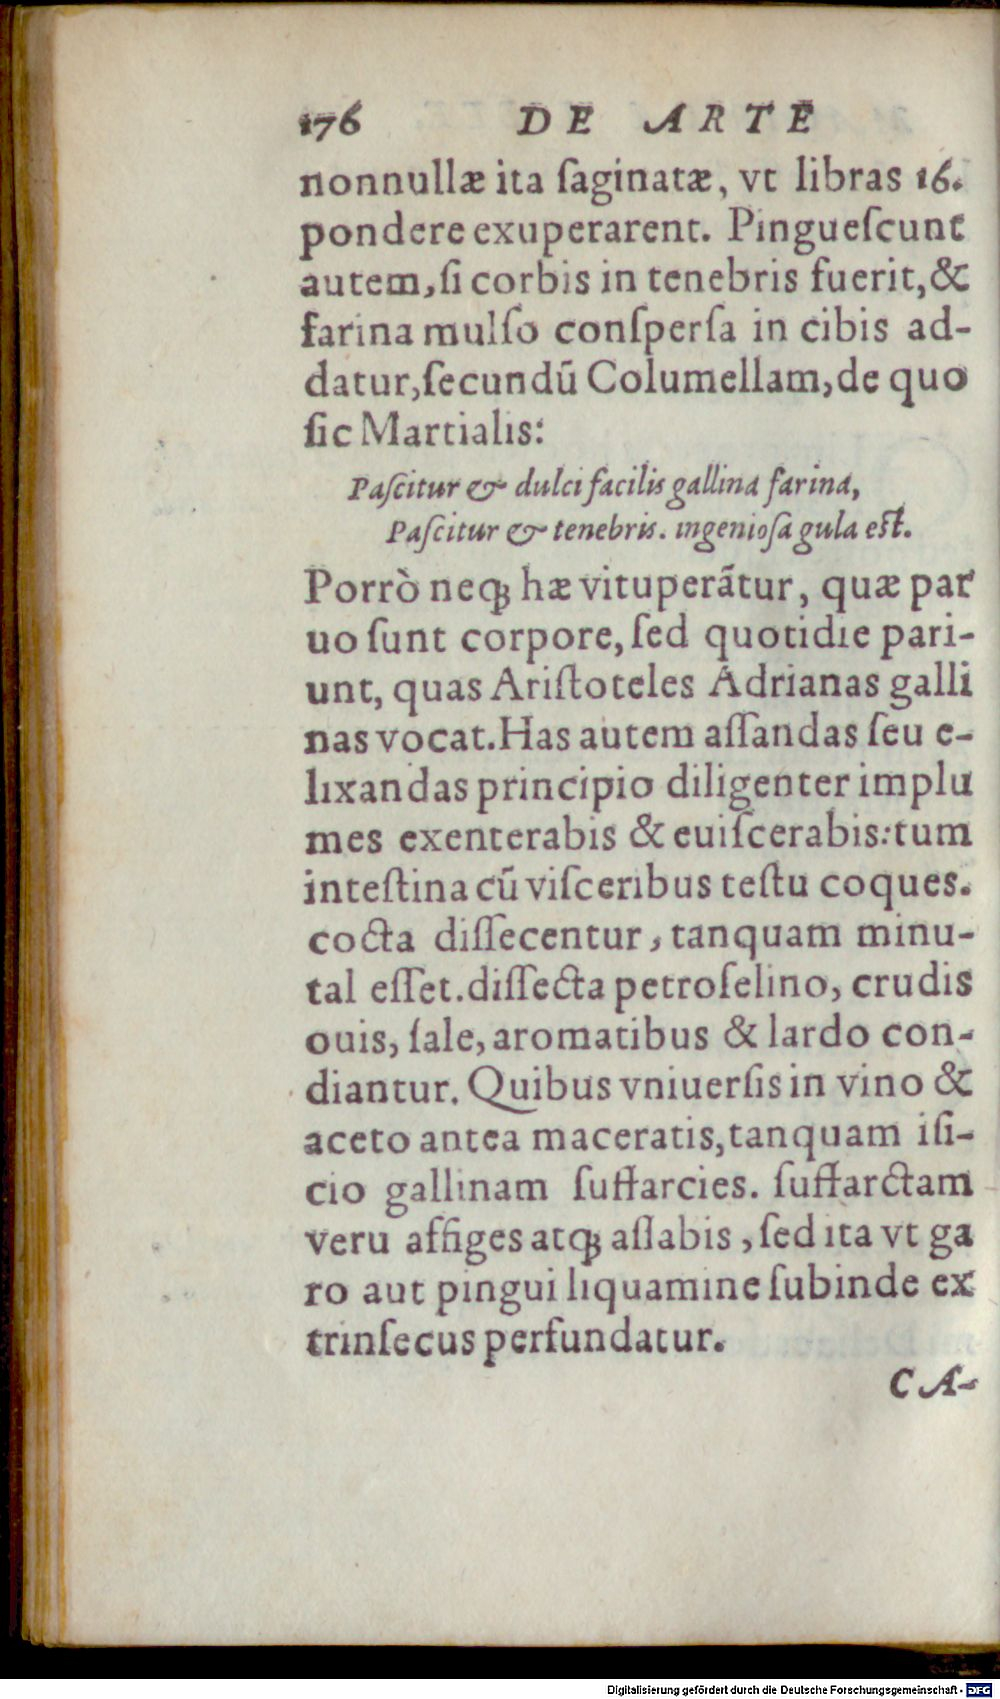 176 DE ARTE
nonnullæ ita ſaginatæ, vt libras 16.
pondere exuperarent. Pingueſcunt
autem, ſi corbis in tenebris fuerit, &
farina mulſo conſperſa in cibis ad-
datur, ſecundũ Columellam, de quo
ſic Martialis:
Paſcitur & dulci facilis gallina farina,
Paſcitur & tenebris. ingenioſa gula eſt.
Porrò neqꝫ hæ vituperãtur, quæ par
uo ſunt corpore, ſed quotidie pari-
unt, quas Ariſtoteles Adrianas galli
nas vocat. Has autem aſſandas ſeu e-
lixandas principio diligenter implu
mes exenterabis & euiſcerabis: tum
inteſtina cũ viſceribus teſtu coques.
cocta diſſecentur, tanquam minu-
tal eſſet. diſſecta petroſelino, crudis
ouis, ſale, aromatibus & lardo con-
diantur. Quibus vniuerſis in vino &
aceto antea maceratis, tanquam iſi-
cio gallinam ſuffarcies. ſuffarctam
veru affiges atqꝫ aſſabis, ſed ita vt ga
ro aut pingui liquamine ſubinde ex
trinſecus perfundatur.
CA-
Digitalisierung gefördert durch die Deutsche Forschungsgemeinschaft - DFG